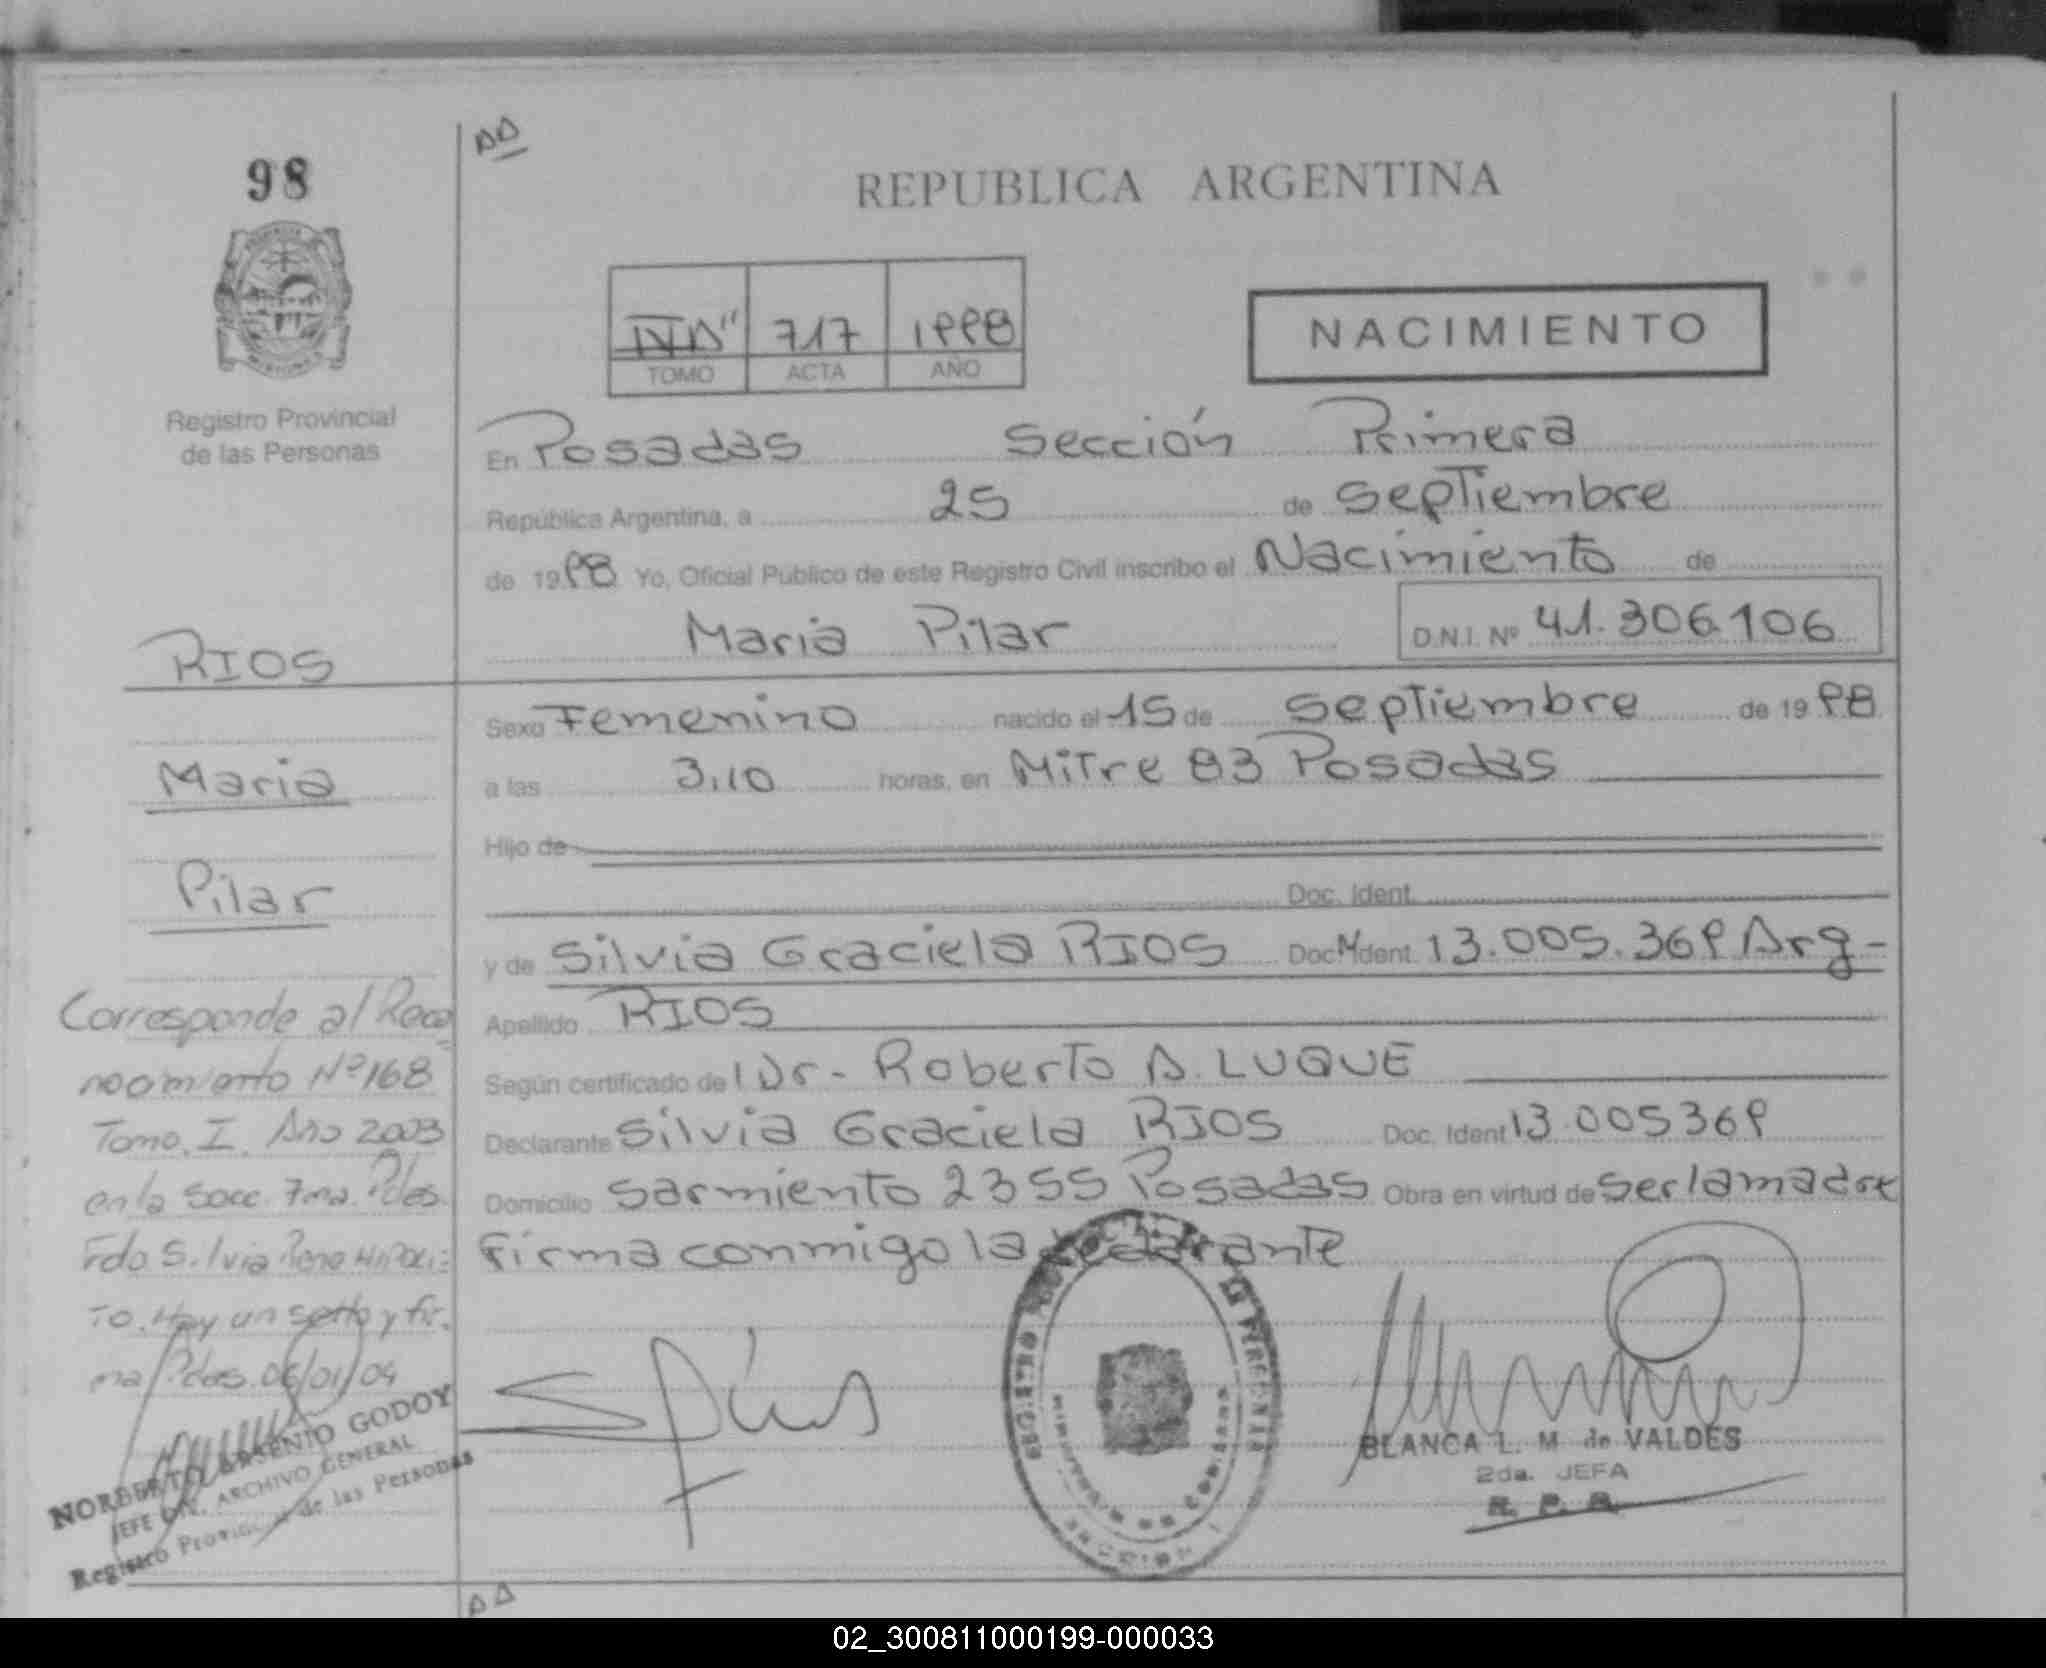 98
REPUBLICA ARGENTINA
IV"A" 717 1998
TOMO ACTA AÑO
NACIMIENTO
Registro Provincial
de las Personas
En Posadas Sección Primera
República Argentina, a 25 de septiembre
de 1998 Yo, Oficial Público de este Registro Civil inscribo el Nacimiento de
Maria Pilar D.N.I. Nº 41.306.106
RIOS
Maria
Pilar
Sexo Femenino nacido el 15 de septiembre de 1998
a las 3,10 horas, en Mitre 83 Posadas
Hijo de
Doc. Ident.
y de Silvia Graciela RIOS Doc. Ident. 13.005.369 Arg-
Apellido RIOS
Según certificado de l Dr- Roberto A. LUQUE
Declarante Silvia Graciela RIOS Doc. Ident 13.005369
Domicilio Sarmiento 2355 Posadas Obra en virtud de ser la madre
Firma conmigo la declarante
Corresponde al Reco
nocimiento Nº 168
Tomo, I. Año 2003
en la Secc. 7ma. Pdas.
Fdo Silvia
to. Hay un sello y fir.
ma Pdas. 06/01/04
NORBERTO ARSENIO GODOY
JEFE DIV. ARCHIVO GENERAL
Registro Provincial de las Personas
BLANCA L. M. de VALDES
2da. JEFA
R. P. P.
02_300811000199-000033